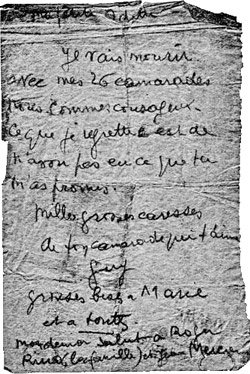 ma petite Odette
Je vais mourir
avec mes 26 camarades
nous sommes courageux.
Ce que je regrette c est de
n avoir pas eu ce que tu
m as promis.
Mille grosses caresses
de ton camarade qui t aime
Guy
grosses bises a Marie
et a toutes
mon dernier salut a Roger
Rino (la famille)